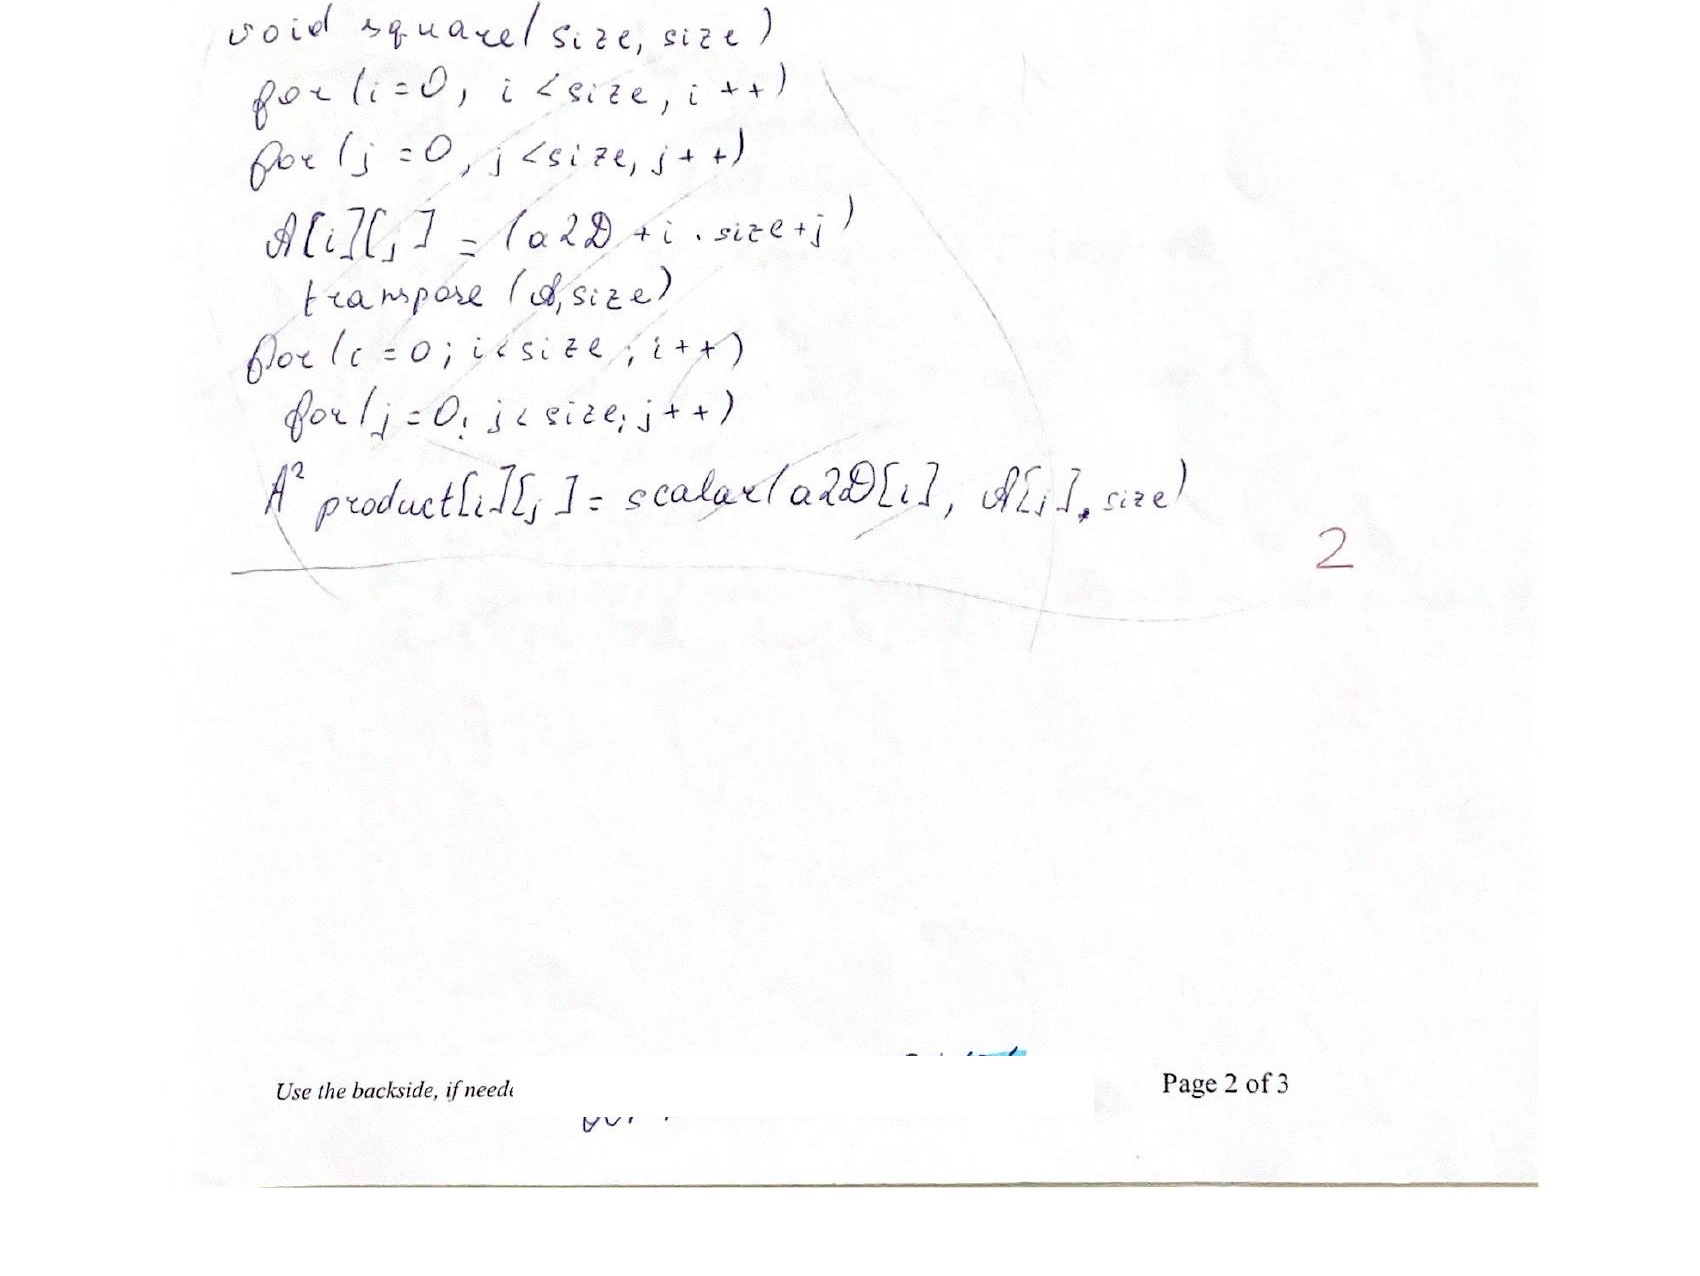 void square(size, size)
for (i=0, i <size, i ++)
for (j =0, j <size, j++)
A[i][j] = (a2D +i . size+j)
transpose (A,size)
for (i =0; i<size; i++)
for (j =0; j< size; j++)
A² product[i][j]= scalar(a2D[i], A[j], size)
2
Use the backside, if neede
Page 2 of 3